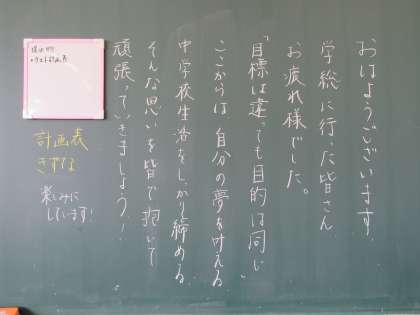 おはようございます。
学総に行った皆さん
お疲れ様でした。
「目標は違っても目的は同じ」
ここからは自分の夢を叶える
中学校生活をしっかり締める
そんな思いを皆で抱いて
頑張っていきましょう！
提出物
計画表
楽しみに
しています！